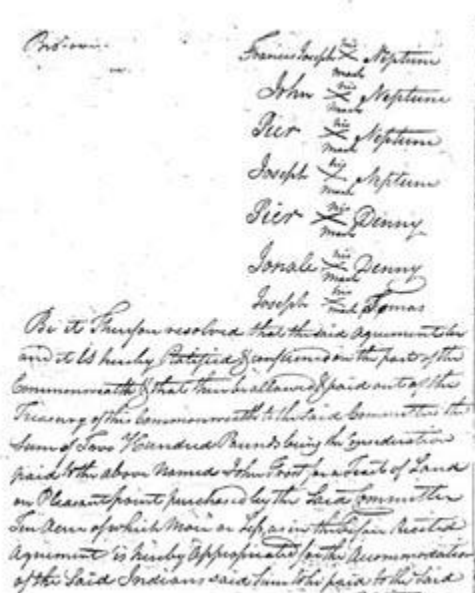 Francis Joseph his X mark Neptune
John his X mark Neptune
Pier his X mark Neptune
Joseph his X mark Neptune
Pier his X mark Denny
Jonale his X mark Denny
Joseph his X mark Tomas
Be it Therefore resolved that the said agreement be
and it is hereby Ratified & confirmed on the part of the
Commonwealth & that there be allowed & paid out of the
Treasury of this Commonwealth to the said Committee the
sum of Two Hundred Pounds being the consideration
paid to the above Named John Frost for a Tract of Land
on Pleasant point purchased by the said Committee
Ten Acres of which More or Less, as in the before Recited
Agreement is hereby Appropriated for the Accommodation
of the Said Indians said Sum to be paid to the Said